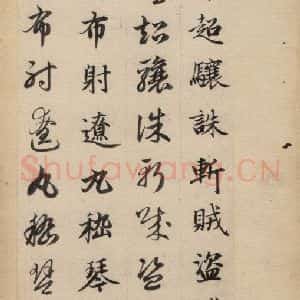 超驤誅斬賊盜
超驤誅斬賊盜
布射遼丸嵇琴
布射遼丸嵇琴
Shufawang.CN